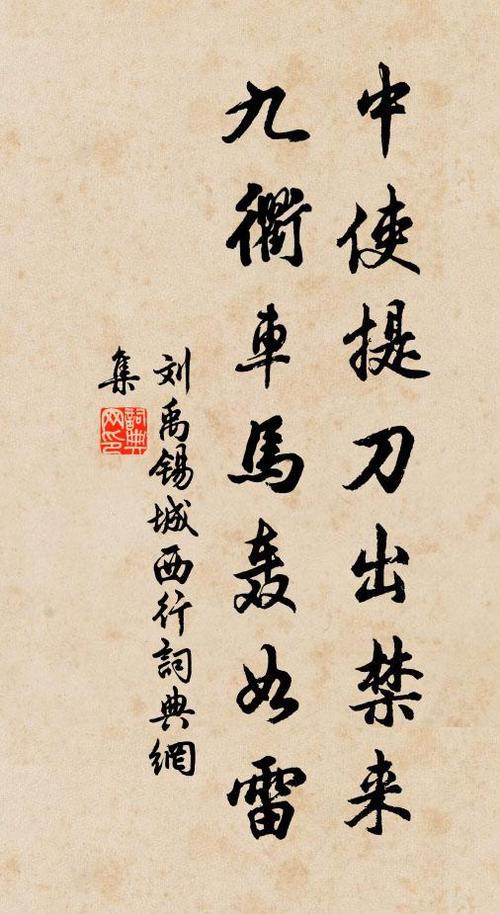 中使提刀出禁来
九衢車馬轰如雷
刘禹锡城西行詞典網
集
詞典网印